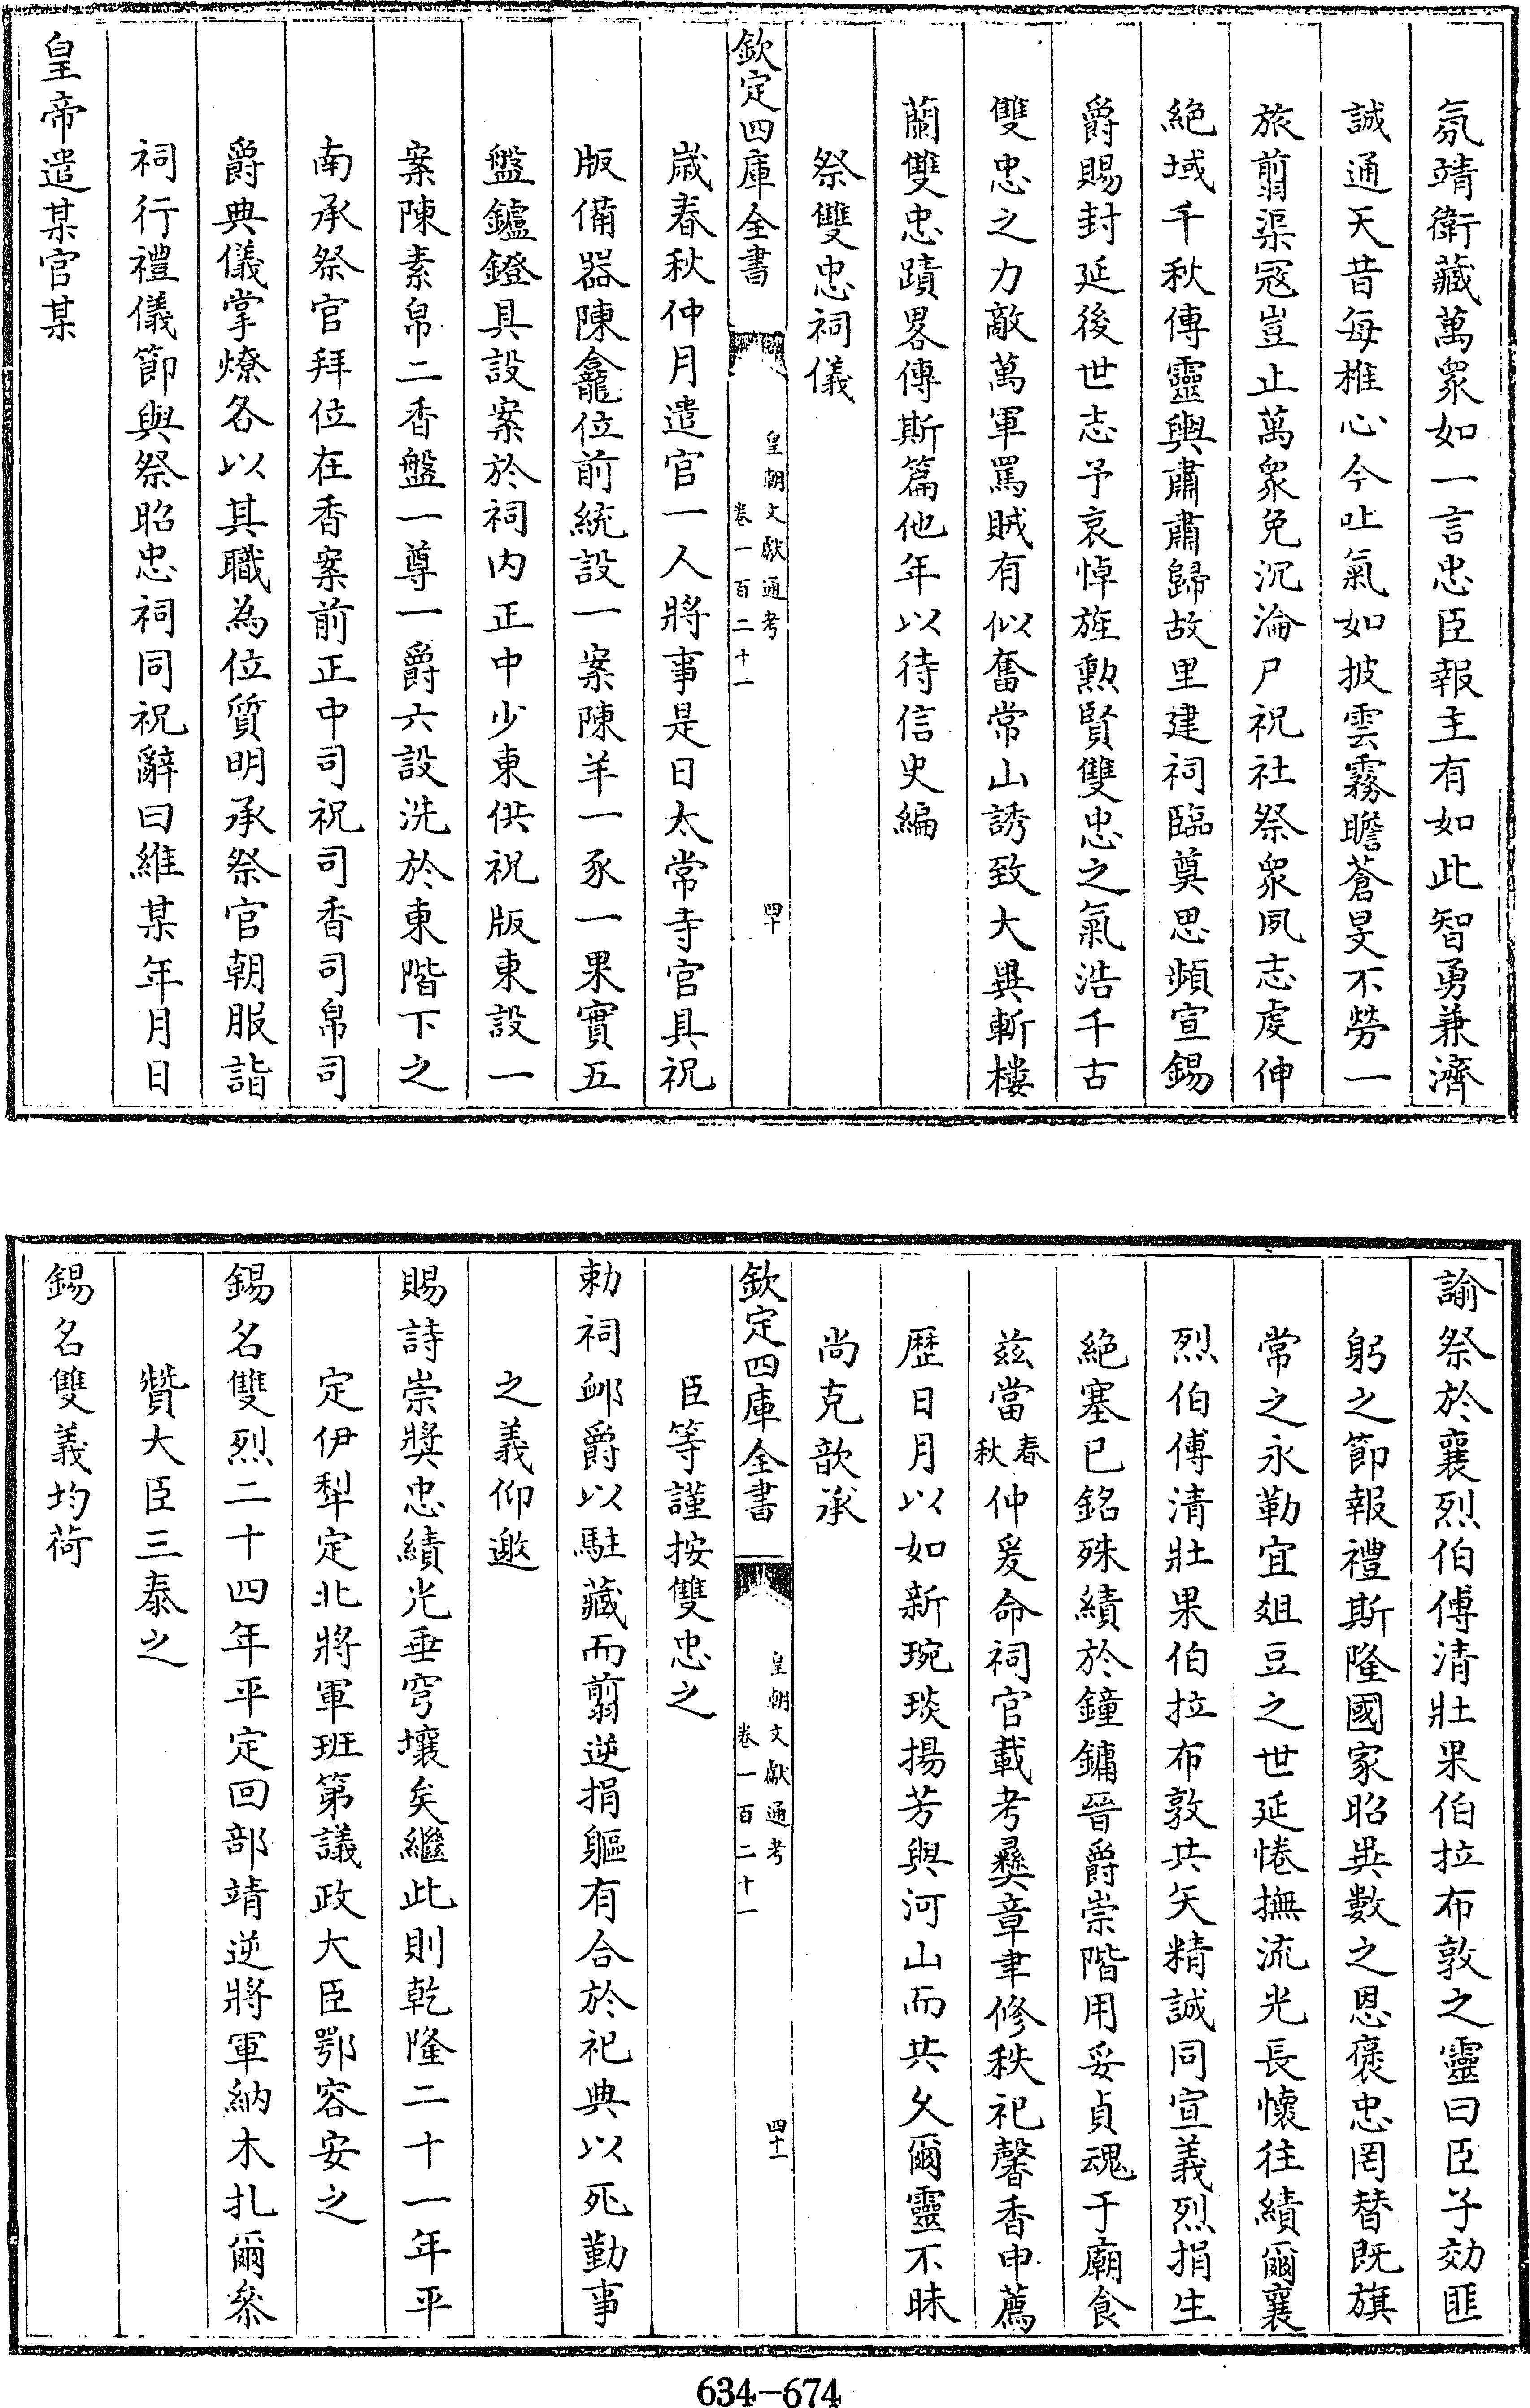 氛靖衛藏萬衆如一言忠臣報主有如此智勇兼濟
誠通天昔每推心今吐氣如披雲霧瞻蒼旻不勞一
旅翦渠冦豈止萬衆免沉淪尸祝社祭衆夙志虔伸
絶域千秋傳靈輿肅肅歸故里建祠臨奠思頻宣錫
爵賜封延後世志予哀悼旌勲賢雙忠之氣浩千古
雙忠之力敵萬軍罵賊有似奮常山誘致大異斬樓
蘭雙忠蹟畧傳斯篇他年以待信史編
祭雙忠祠儀
欽定四庫全書
皇朝文獻通考
卷一百二十一
四十
歳春秋仲月遣官一人將事是日太常寺官具祝
版備器陳龕位前統設一案陳羊一豕一果實五
盤鑪鐙具設案於祠内正中少東供祝版東設一
案陳素帛二香盤一尊一爵六設洗於東階下之
南承祭官拜位在香案前正中司祝司香司帛司
爵典儀掌燎各以其職為位質明承祭官朝服詣
祠行禮儀節與祭昭忠祠同祝辭曰維某年月日
皇帝遣某官某
諭祭於襄烈伯傅清壯果伯拉布敦之靈曰臣子効匪
躬之節報禮斯隆國家昭異數之恩褒忠罔替既旗
常之永勒宜俎豆之世延惓撫流光長懷往績爾襄
烈伯傅清壯果伯拉布敦共矢精誠同宣義烈捐生
絶塞已銘殊績於鐘鏞晉爵崇階用妥貞魂于廟食
茲當春秋仲爰命祠官載考彞章聿修秩祀馨香申薦
歴日月以如新琬琰揚芳與河山而共久爾靈不昧
尚克歆承
欽定四庫全書
皇朝文獻通考
卷一百二十一
四十一
臣等謹按雙忠之
勅祠䘏爵以駐藏而翦逆捐軀有合於祀典以死勤事
之義仰邀
賜詩崇奬忠績光垂穹壤矣繼此則乾隆二十一年平
定伊犁定北將軍班第議政大臣鄂容安之
錫名雙烈二十四年平定回部靖逆將軍納木扎爾叅
贊大臣三泰之
錫名雙義均荷
634-674